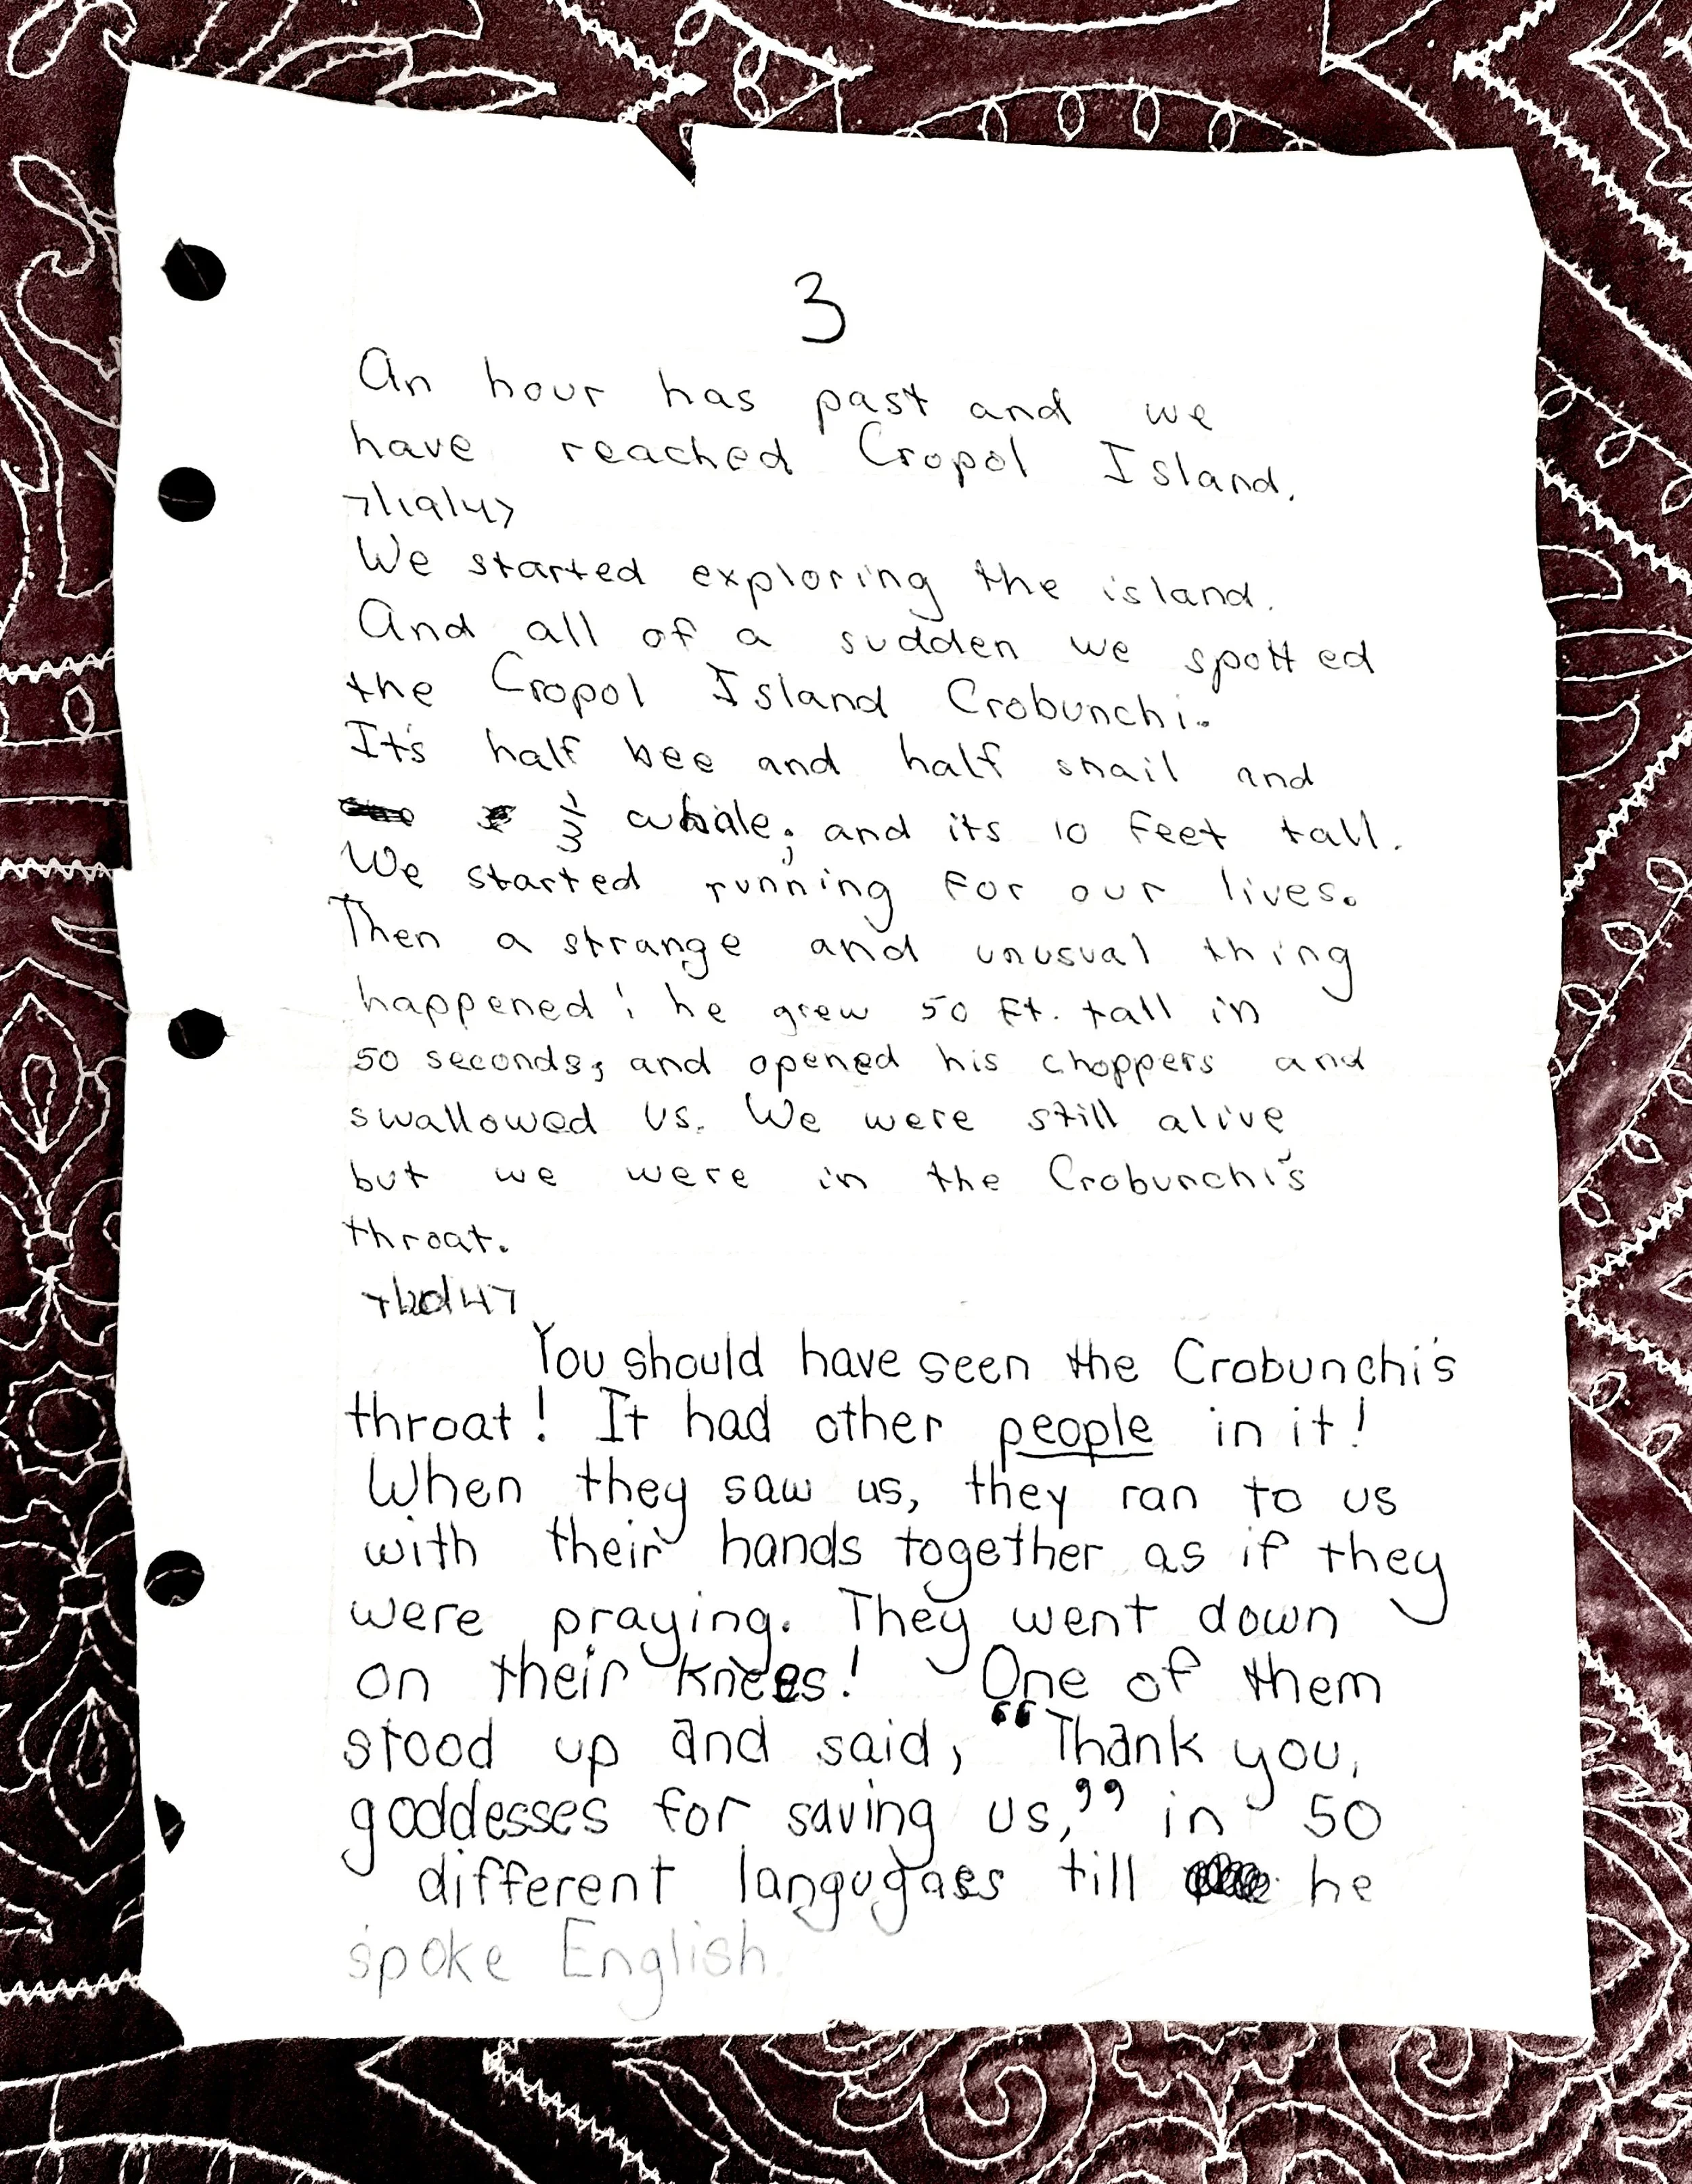 3
An hour has past and we
have reached Cropol Island.
7/19/47
We started exploring the island.
And all of a sudden we spotted
the Cropol Island Crobunchi.
It's half bee and half snail and
1/3 whale; and its 10 feet tall.
We started running for our lives.
Then a strange and unusual thing
happened: he grew 50 ft. tall in
50 seconds, and opened his choppers and
swallowed us. We were still alive
but we were in the Crobunchi's
throat.
7/20/47
You should have seen the Crobunchi's
throat! It had other people in it!
When they saw us, they ran to us
with their hands together as if they
were praying. They went down
on their knees! One of them
stood up and said, “Thank you,
goddesses for saving us,” in 50
different langugaes till he
spoke English.